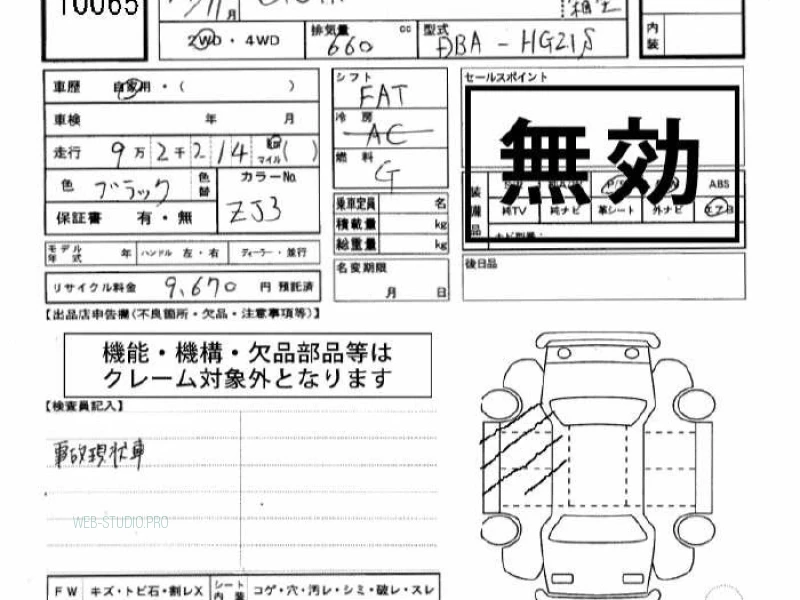 10065
月
2WD・4WD
排気量 cc
660
型式
DBA - HG21S
内装
車歴 自家用・( )
車検 年 月
走行 9万2千214 km マイル ( )
色 ブラック 色替
カラーNo.
ZJ3
保証書 有・無
シフト
FAT
冷房
AC
燃料
G
乗車定員 名
積載量 kg
総重量 kg
セールスポイント
無効
装備品
ABS
純TV 純ナビ 革シート 外ナビ エアB
モデル年式 年 ハンドル 左・右 ディーラー・並行
リサイクル料金 9,670 円 預託済
名変期限
月 日
後日品
【出品店申告欄(不良箇所・欠品・注意事項等)】
機能・機構・欠品部品等は
クレーム対象外となります
【検査員記入】
事故現状車
WEB-STUDIO.PRO
FW キズ・トビ石・割レX シート内装 コゲ・穴・汚レ・シミ・破レ・スレ